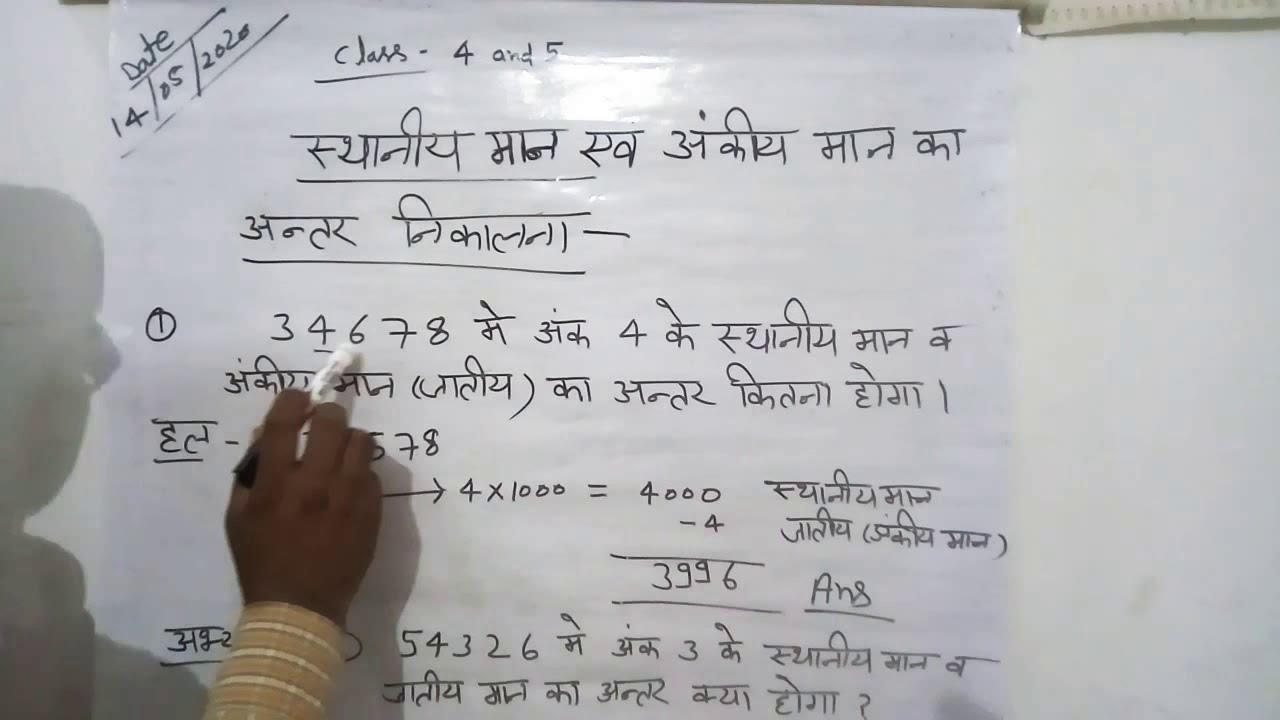 Date
14/05/2020
Class - 4 and 5
स्थानीय मान एव अंकीय मान का
अन्तर निकालना —
① 34678 मे अंक 4 के स्थानीय मान व
अंकीय मान (जातीय) का अन्तर कितना होगा।
हल - 678
→ 4×1000 = 4000 स्थानीय मान
-4 जातीय (अंकीय मान)
3996 Ans
54326 मे अंक 3 के स्थानीय मान व
जातीय मान का अन्तर क्या होगा ?